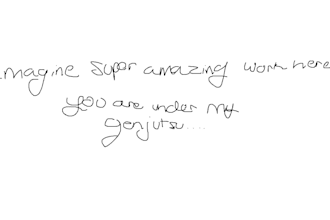 magine super amazing work here
you are under my
genjutsu....